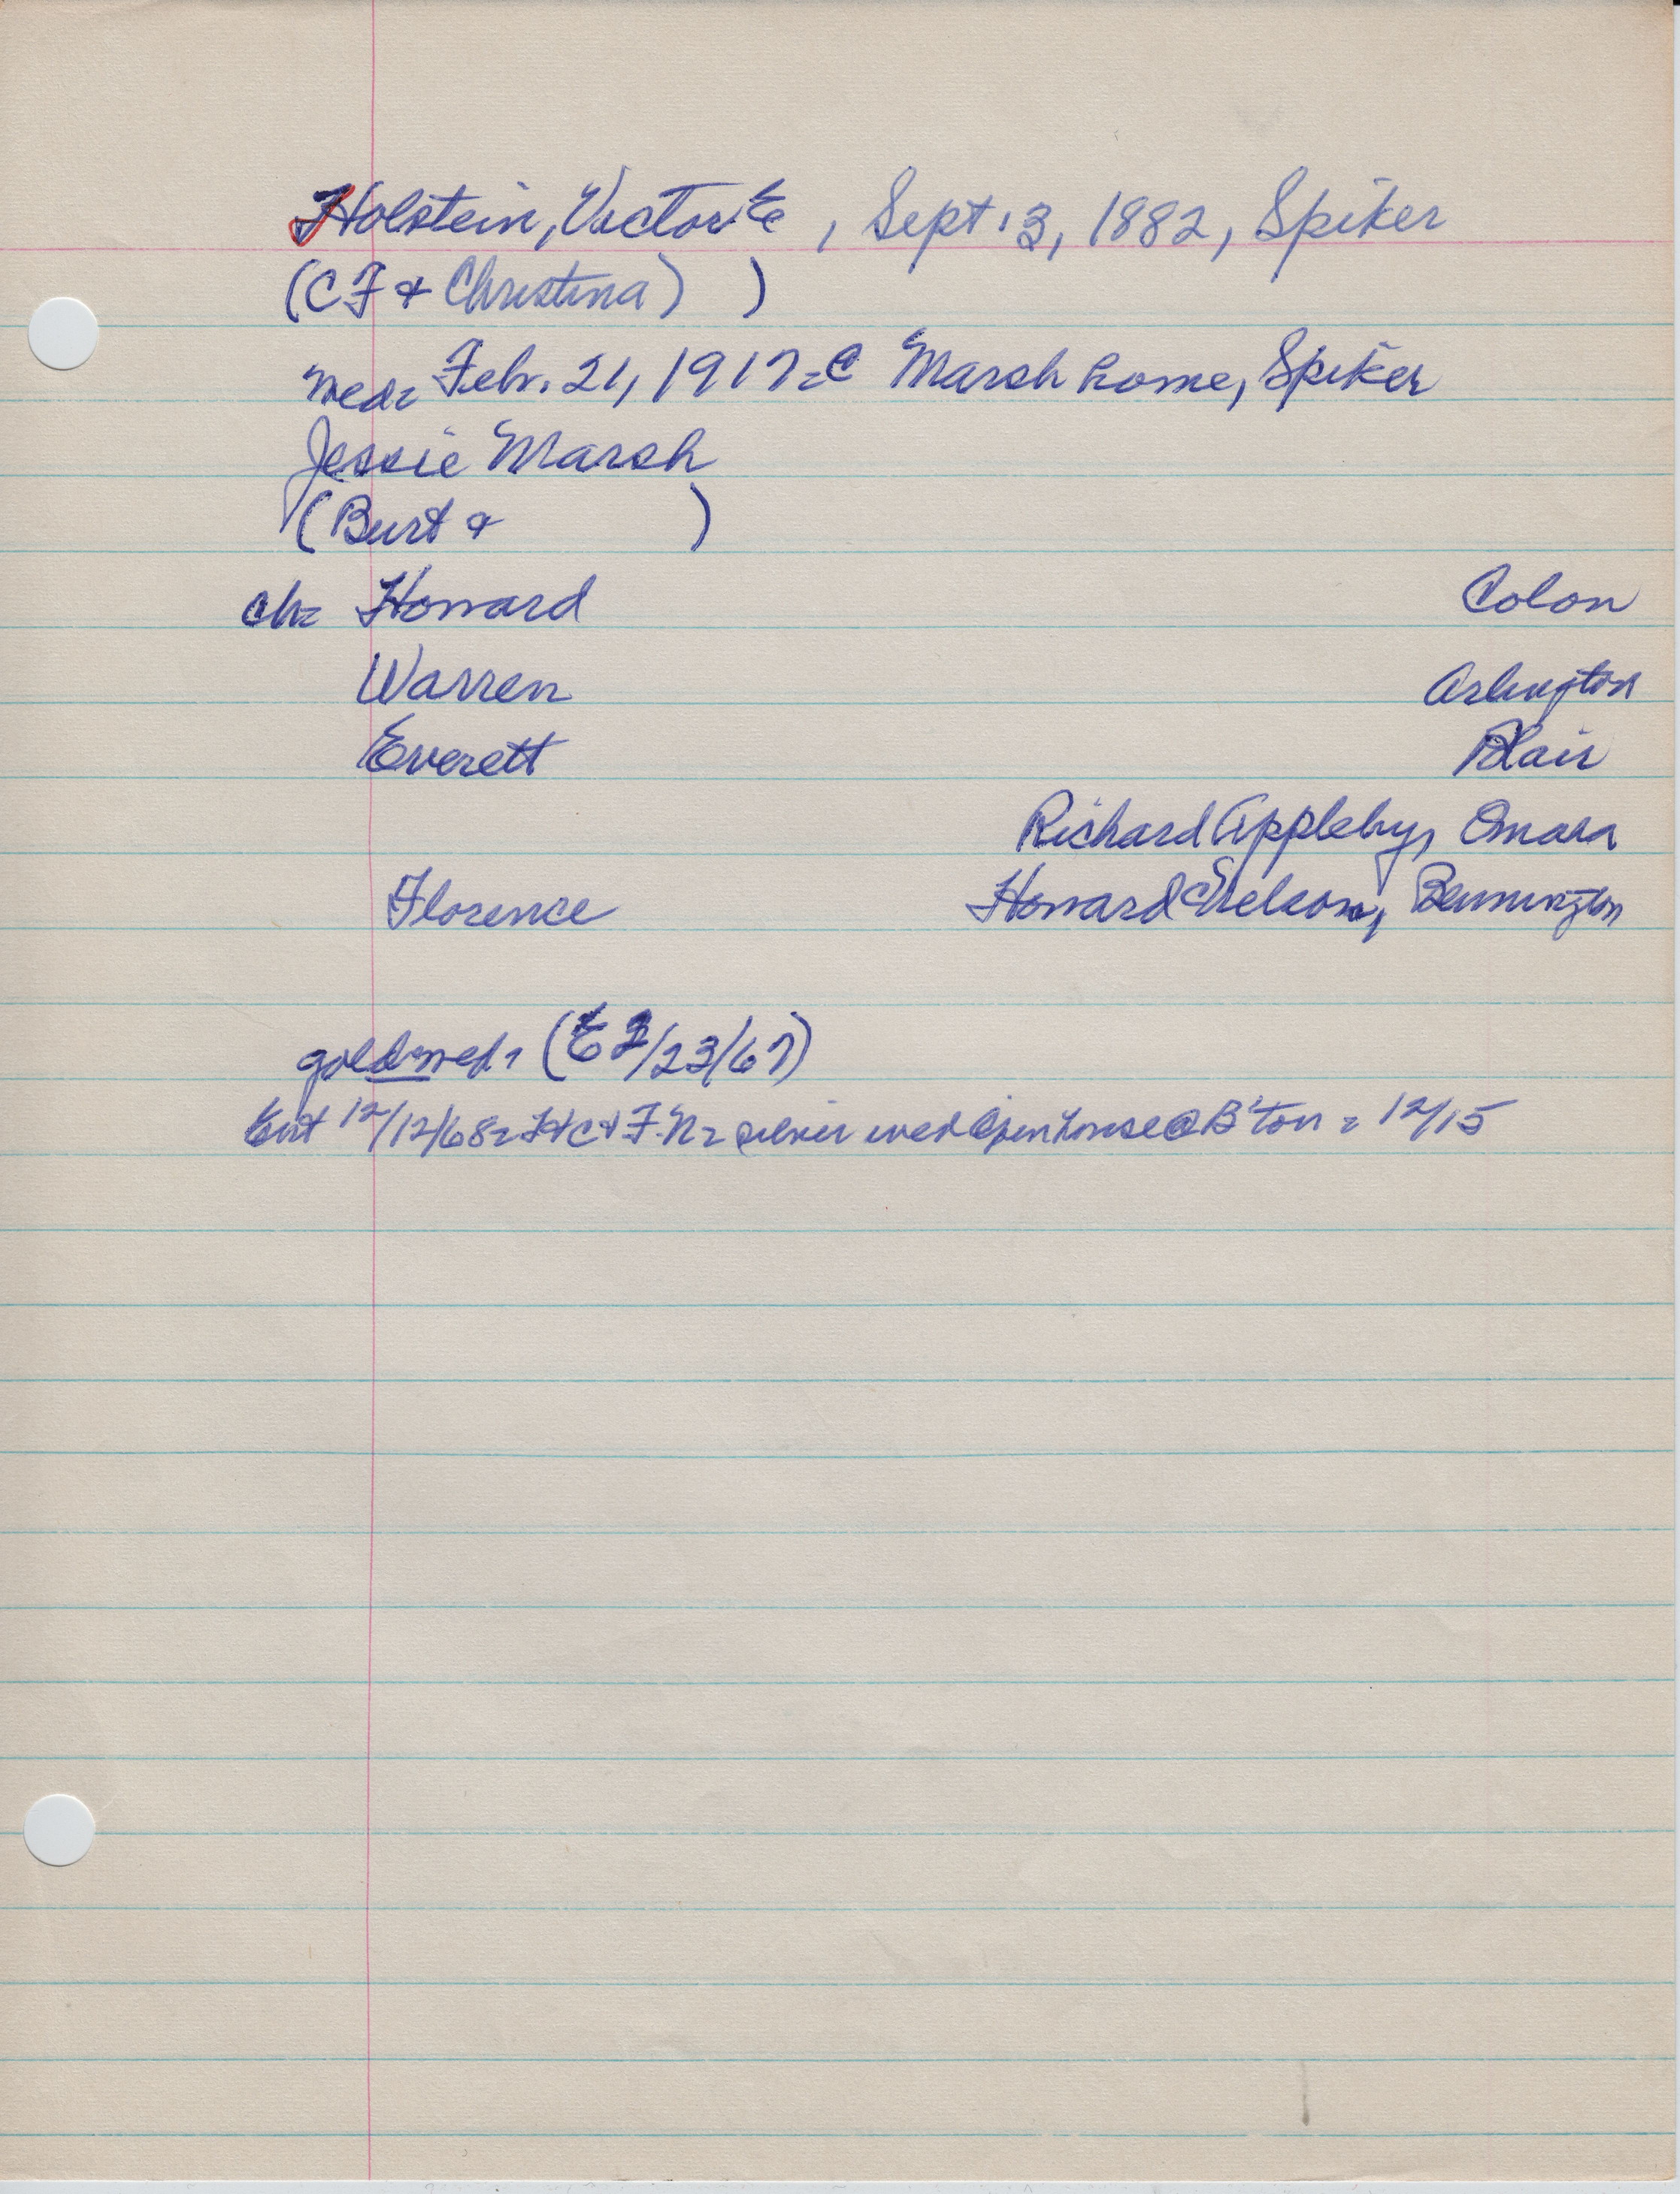 Holstein, Victor E , Sept. 3, 1882, Spiker
(CF & Christina) )
wed= Feb. 21, 1917=C Marsh home, Spiker
Jessie Marsh
(Burt & )
ch= Howard Colon
Warren Arlington
Everett Blair
Richard Appleby, Omaha
Florence Howard Nelson, Bennington
gold wed= (E 2/23/67)
Ent 12/12/68= H & F N= silver wed open house @ B'ton = 12/15